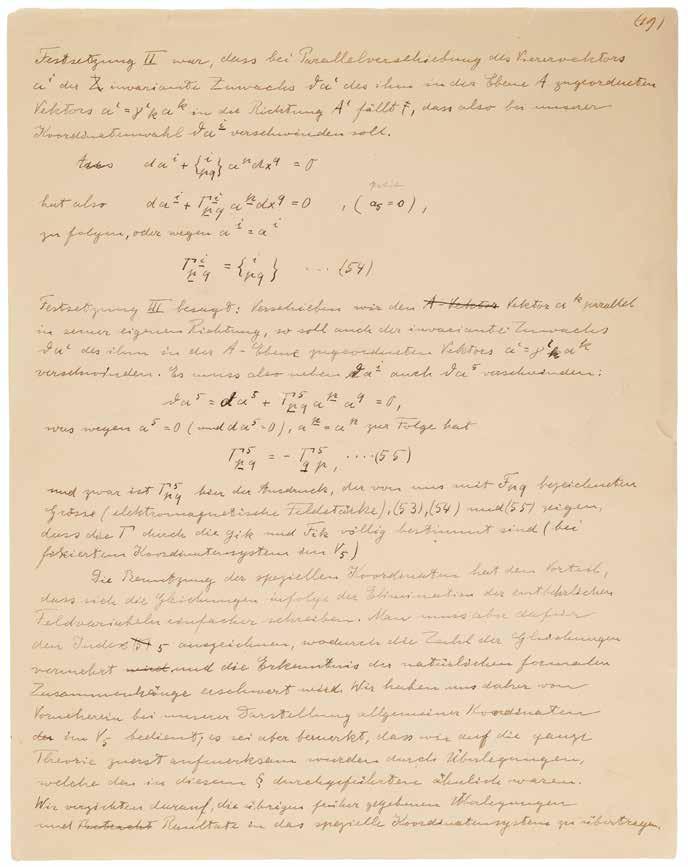 (19)
Festsetzung II war, dass bei Parallelverschiebung des Vierervektors
a^i der invariante Zuwachs ϑa^i des ihm in der Ebene A zugeordneten
Vektors a^ι = γ^ι_k a^k in die Richtung A^ι fällt, dass also bei unserer
Koordinatenwahl ϑa^i verschwinden soll.
Aus da^i + {^i_pq} a^p dx^q = 0
hat also da^i + Γ^i_pq a^p dx^q = 0 , (a_5 = 0) ,
zu folgen, oder wegen a^i = a^i
Γ^i_pq = {^i_pq} .... (54)
Festsetzung III besagt: Verschieben wir den A-Vektor Vektor a^k parallel
in seiner eigenen Richtung, so soll auch der invariante Zuwachs
ϑa^ι des ihm in der A-Ebene zugeordneten Vektors a^ι = γ^ι_k a^k
verschwinden. Es muss also neben ϑa^i auch ϑa^5 verschwinden:
ϑa^5 = da^5 + Γ^5_pq a^p a^q = 0,
was wegen a^5 = 0 (und da^5 = 0), a^p = a^p zur Folge hat
Γ^5_pq = - Γ^5_qp, ....(55)
und zwar ist Γ^5_pq hier der Ausdruck, der von uns mit F_pq bezeichneten
Grösse (elektromagnetische Feldstärke). (53), (54) und (55) zeigen,
dass die Γ durch die gik und Fik völlig bestimmt sind (bei
fixiertem Koordinatensystem im V_5)
Die Benutzung der speziellen Koordinaten hat den Vorteil,
dass sich die Gleichungen infolge der Elimination der entbehrlichen
Feldvariabeln einfacher schreiben. Man muss aber dafür
den Index 5 auszeichnen, wodurch die Zahl der Gleichungen
vermehrt wird und die Erkenntnis der natürlichen formalen
Zusammenhänge erschwert wird. Wir haben uns daher von
Vorneherein bei unserer Darstellung allgemeiner Koordinaten
der im V_5 bedient, es sei aber bemerkt, dass wir auf die ganze
Theorie zuerst aufmerksam wurden durch Überlegungen,
welche den in diesem § durchgeführten ähnlich waren.
Wir verzichten darauf, die übrigen früher gegebenen Überlegungen
und Resultate in das spezielle Koordinatensystem zu übertragen.